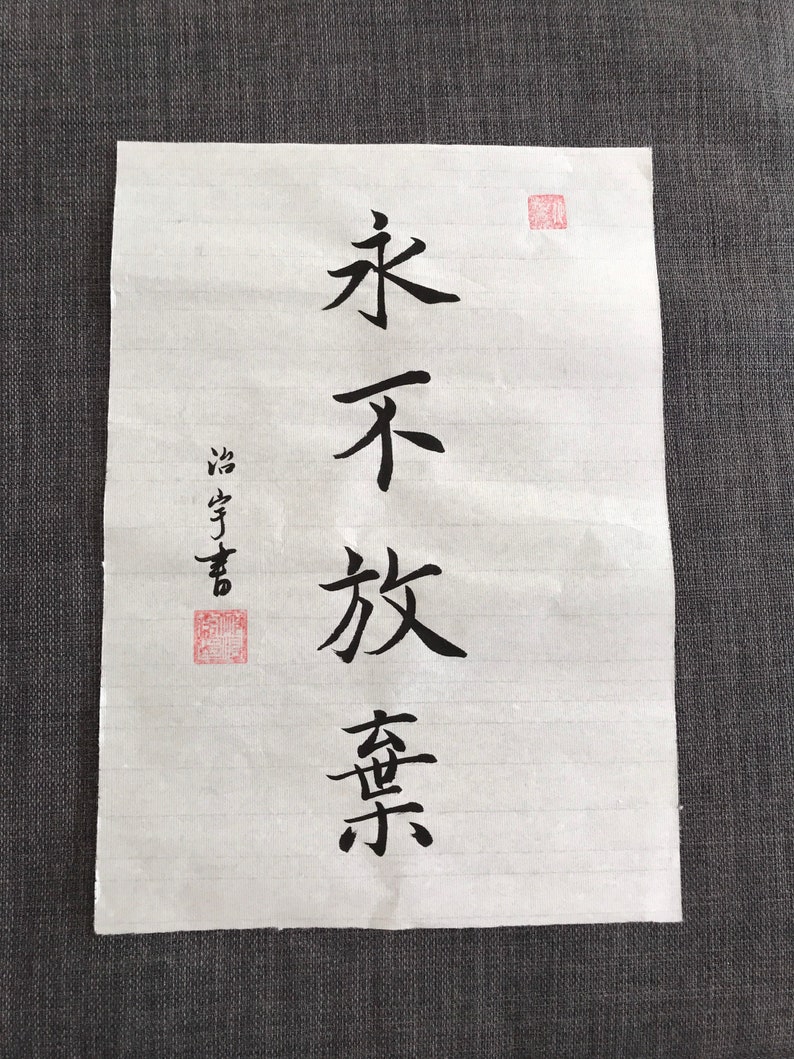 永不放棄
治宇書